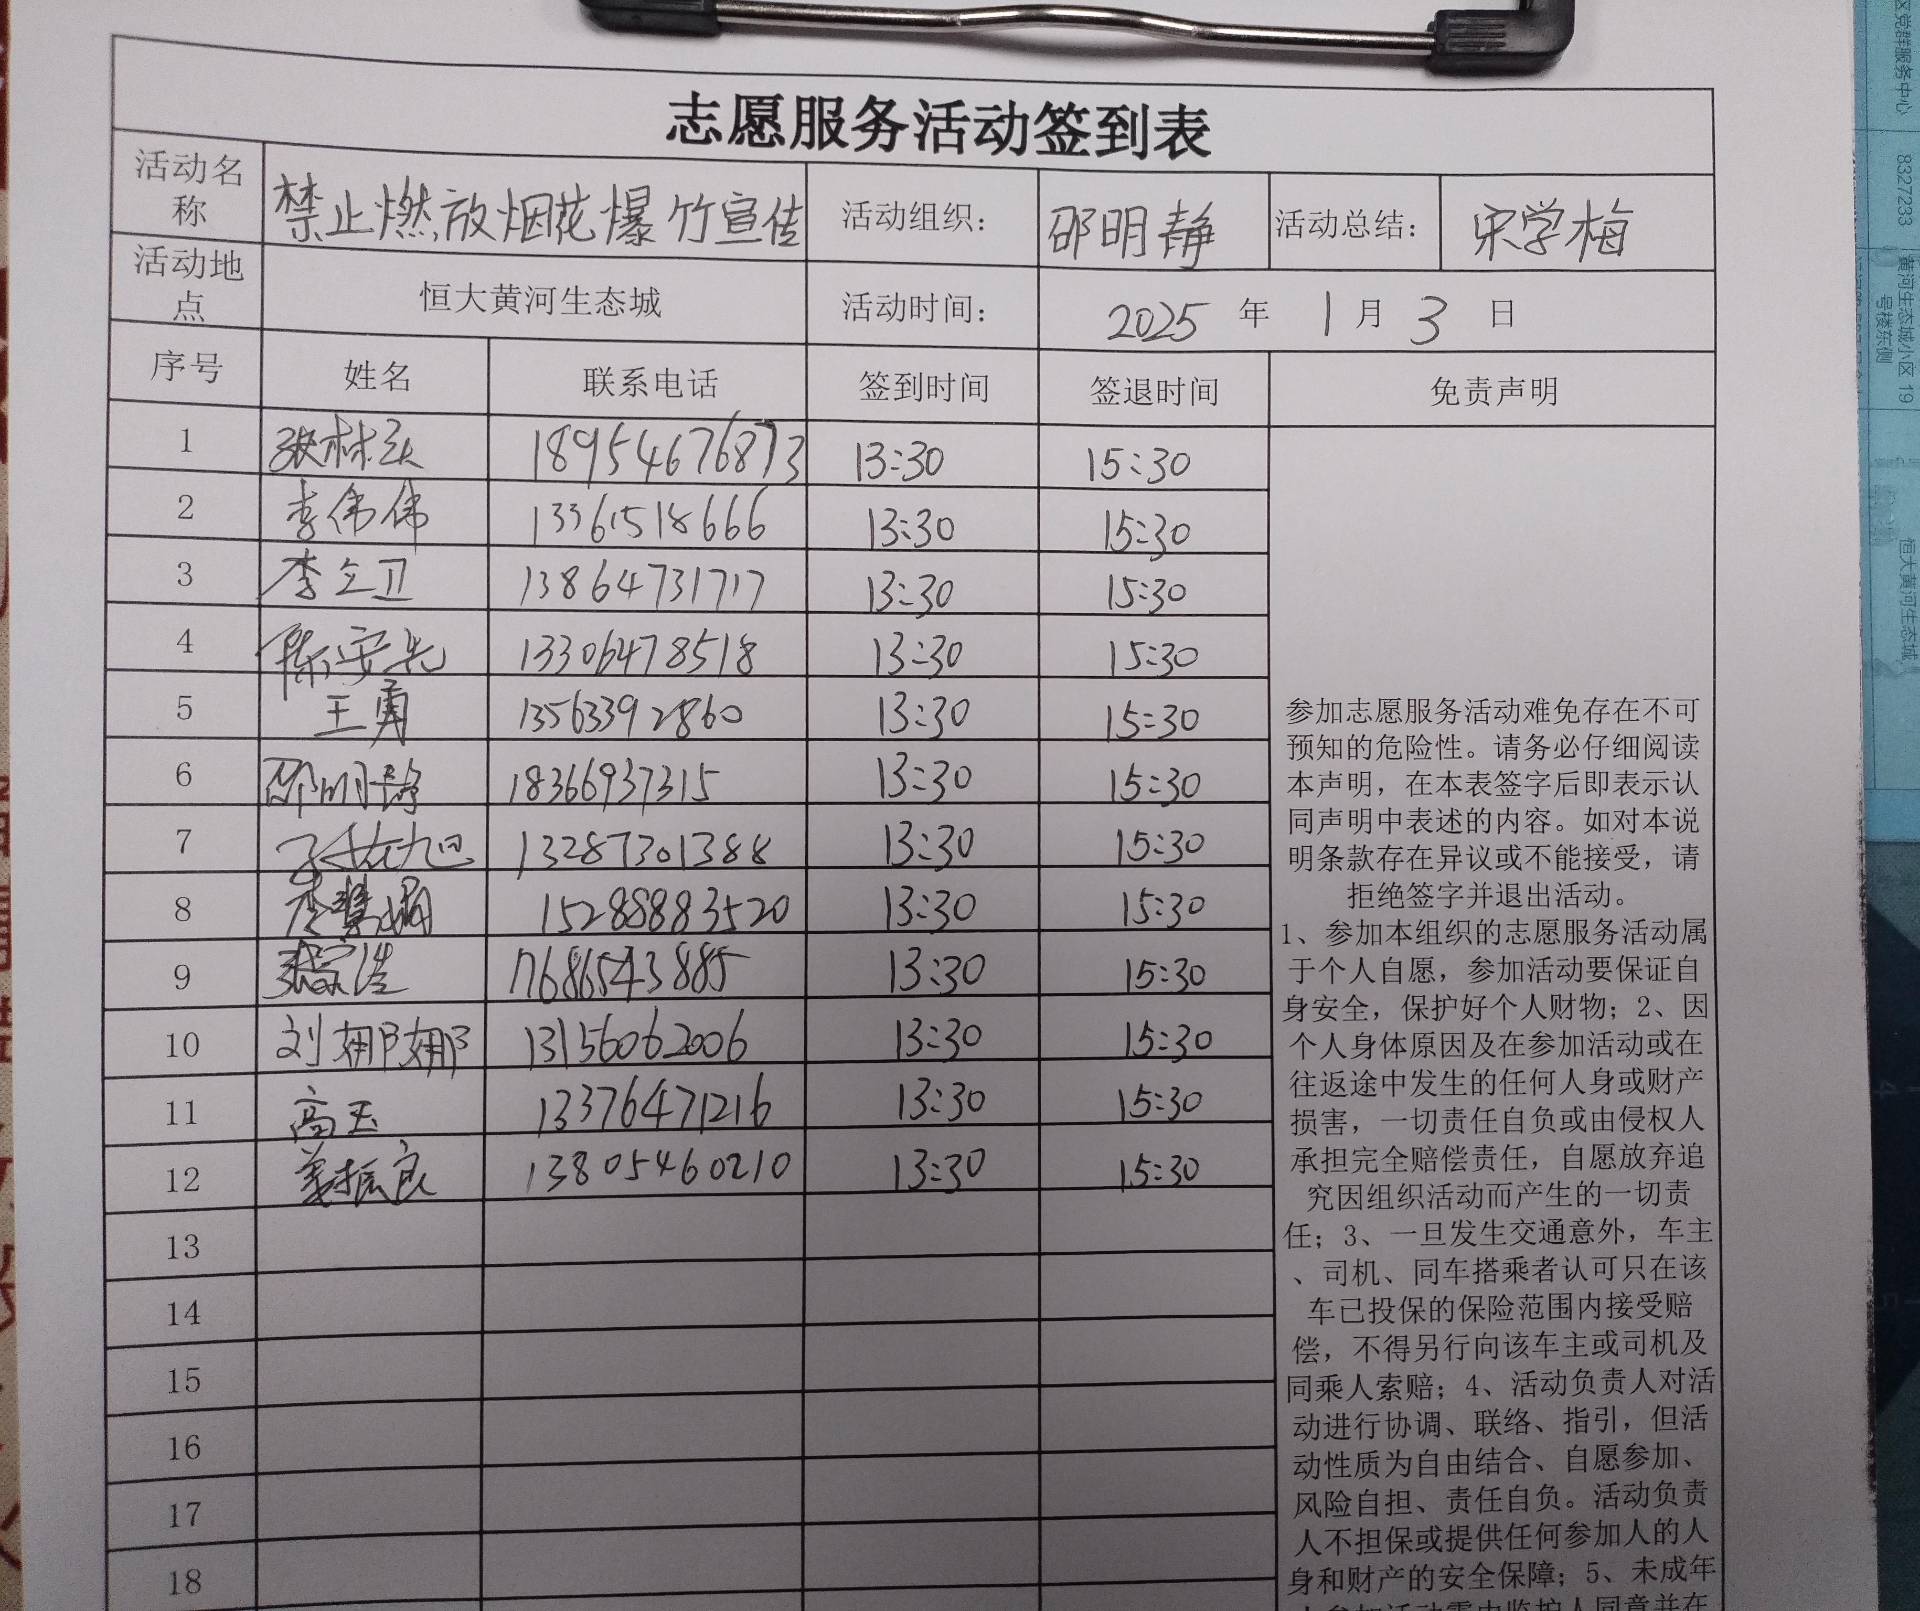 志愿服务活动签到表
活动名称 禁止燃放烟花爆竹宣传 活动组织： 邵明静 活动总结： 宋学梅
活动地点 恒大黄河生态城 活动时间： 2025 年 1 月 3 日
序号 姓名 联系电话 签到时间 签退时间 免责声明
1 18954676873 13:30 15:30
2 李伟伟 13361518666 13:30 15:30
3 李立卫 13864731717 13:30 15:30
4 陈安先 13306478518 13:30 15:30
5 王勇 13563392860 13:30 15:30
6 邵明静 18366937315 13:30 15:30
7 13287301388 13:30 15:30
8 李慧娟 15288883520 13:30 15:30
9 17686543885 13:30 15:30
10 刘娜娜 13156062006 13:30 15:30
11 高玉 13376471216 13:30 15:30
12 姜振良 13805460210 13:30 15:30
13
14
15
16
17
18
参加志愿服务活动难免存在不可
预知的危险性。请务必仔细阅读
本声明，在本表签字后即表示认
同声明中表述的内容。如对本说
明条款存在异议或不能接受，请
拒绝签字并退出活动。
1、参加本组织的志愿服务活动属
于个人自愿，参加活动要保证自
身安全，保护好个人财物；2、因
个人身体原因及在参加活动或在
往返途中发生的任何人身或财产
损害，一切责任自负或由侵权人
承担完全赔偿责任，自愿放弃追
究因组织活动而产生的一切责
任；3、一旦发生交通意外，车主
、司机、同车搭乘者认可只在该
车已投保的保险范围内接受赔
偿，不得另行向该车主或司机及
同乘人索赔；4、活动负责人对活
动进行协调、联络、指引，但活
动性质为自由结合、自愿参加、
风险自担、责任自负。活动负责
人不担保或提供任何参加人的人
身和财产的安全保障；5、未成年
区党群服务中心
8327233
黄河生态城小区 19
号楼东侧
恒大黄河生态城